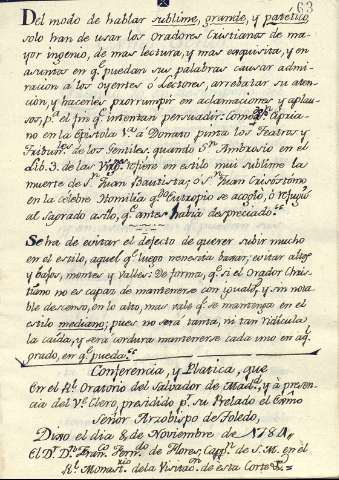 63
Del modo de hablar sublime, grande, y patético
solo han de usar los Oradores Cristianos de ma-
yor ingenio, de mas lectura, y mas exquisita, y en
asuntos en q.e puedan sus palabras causar admi-
racion a los oyentes ó Lectores, arrebatar su aten-
cion, y hacerles prorrumpir en aclamaciones y aplau-
sos, p.a el fin q.e intentan persuadir: Como S.n Cipria-
no en la Epistola V.a á Donato pinta los Teatros y
Tribun.les de los Gentiles. quando S.n Ambrosio en el
Lib. 3. de las Virg.nes refiere en estilo mui sublime la
muerte de S.n Juan Bautista; ó S.n Juan Crisóstomo
en la célebre Homilia q.do Eutropio se acogio, ó refugió
al sagrado asilo, q.e antes habia despreciado.
Se ha de evitar el defecto de querer subir mucho
en el estilo, aquel q.e luego necesita baxar; evitar altos
y baxos, montes y valles: De forma, q.e si el Orador Chris-
tiano no es capaz de mantenerse con iguald.d, y sin nota-
ble descenso, en lo alto, mas vale q.e se mantenga en el
estilo mediano; pues no será tanta, ni tan ridicula
la caida, y será cordura mantenerse cada uno en aq.l
grado, en q.e pueda.
Conferencia, y Platica, que
En el R.l Oratorio del Salvador de Mad.d, y á presen-
cia del V.e Clero, presidido p.r su Prelado el Exmo
Señor Arzobispo de Toledo,
Dixo el dia 8, de Noviembre de
El D.r D.n Fran.co Fern.do de Flores, Capp.n de S. M. en el
R.l Monast.rio de la Visitac.on de esta Corte